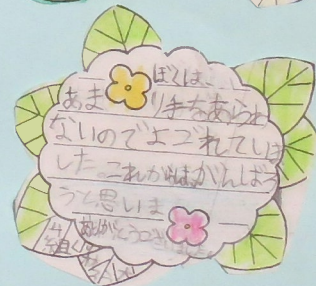 ぼくは、
あまり手をあらわ
ないのでよごれていま
した。これからはがんばろ
うと思いま
ありがとうござ